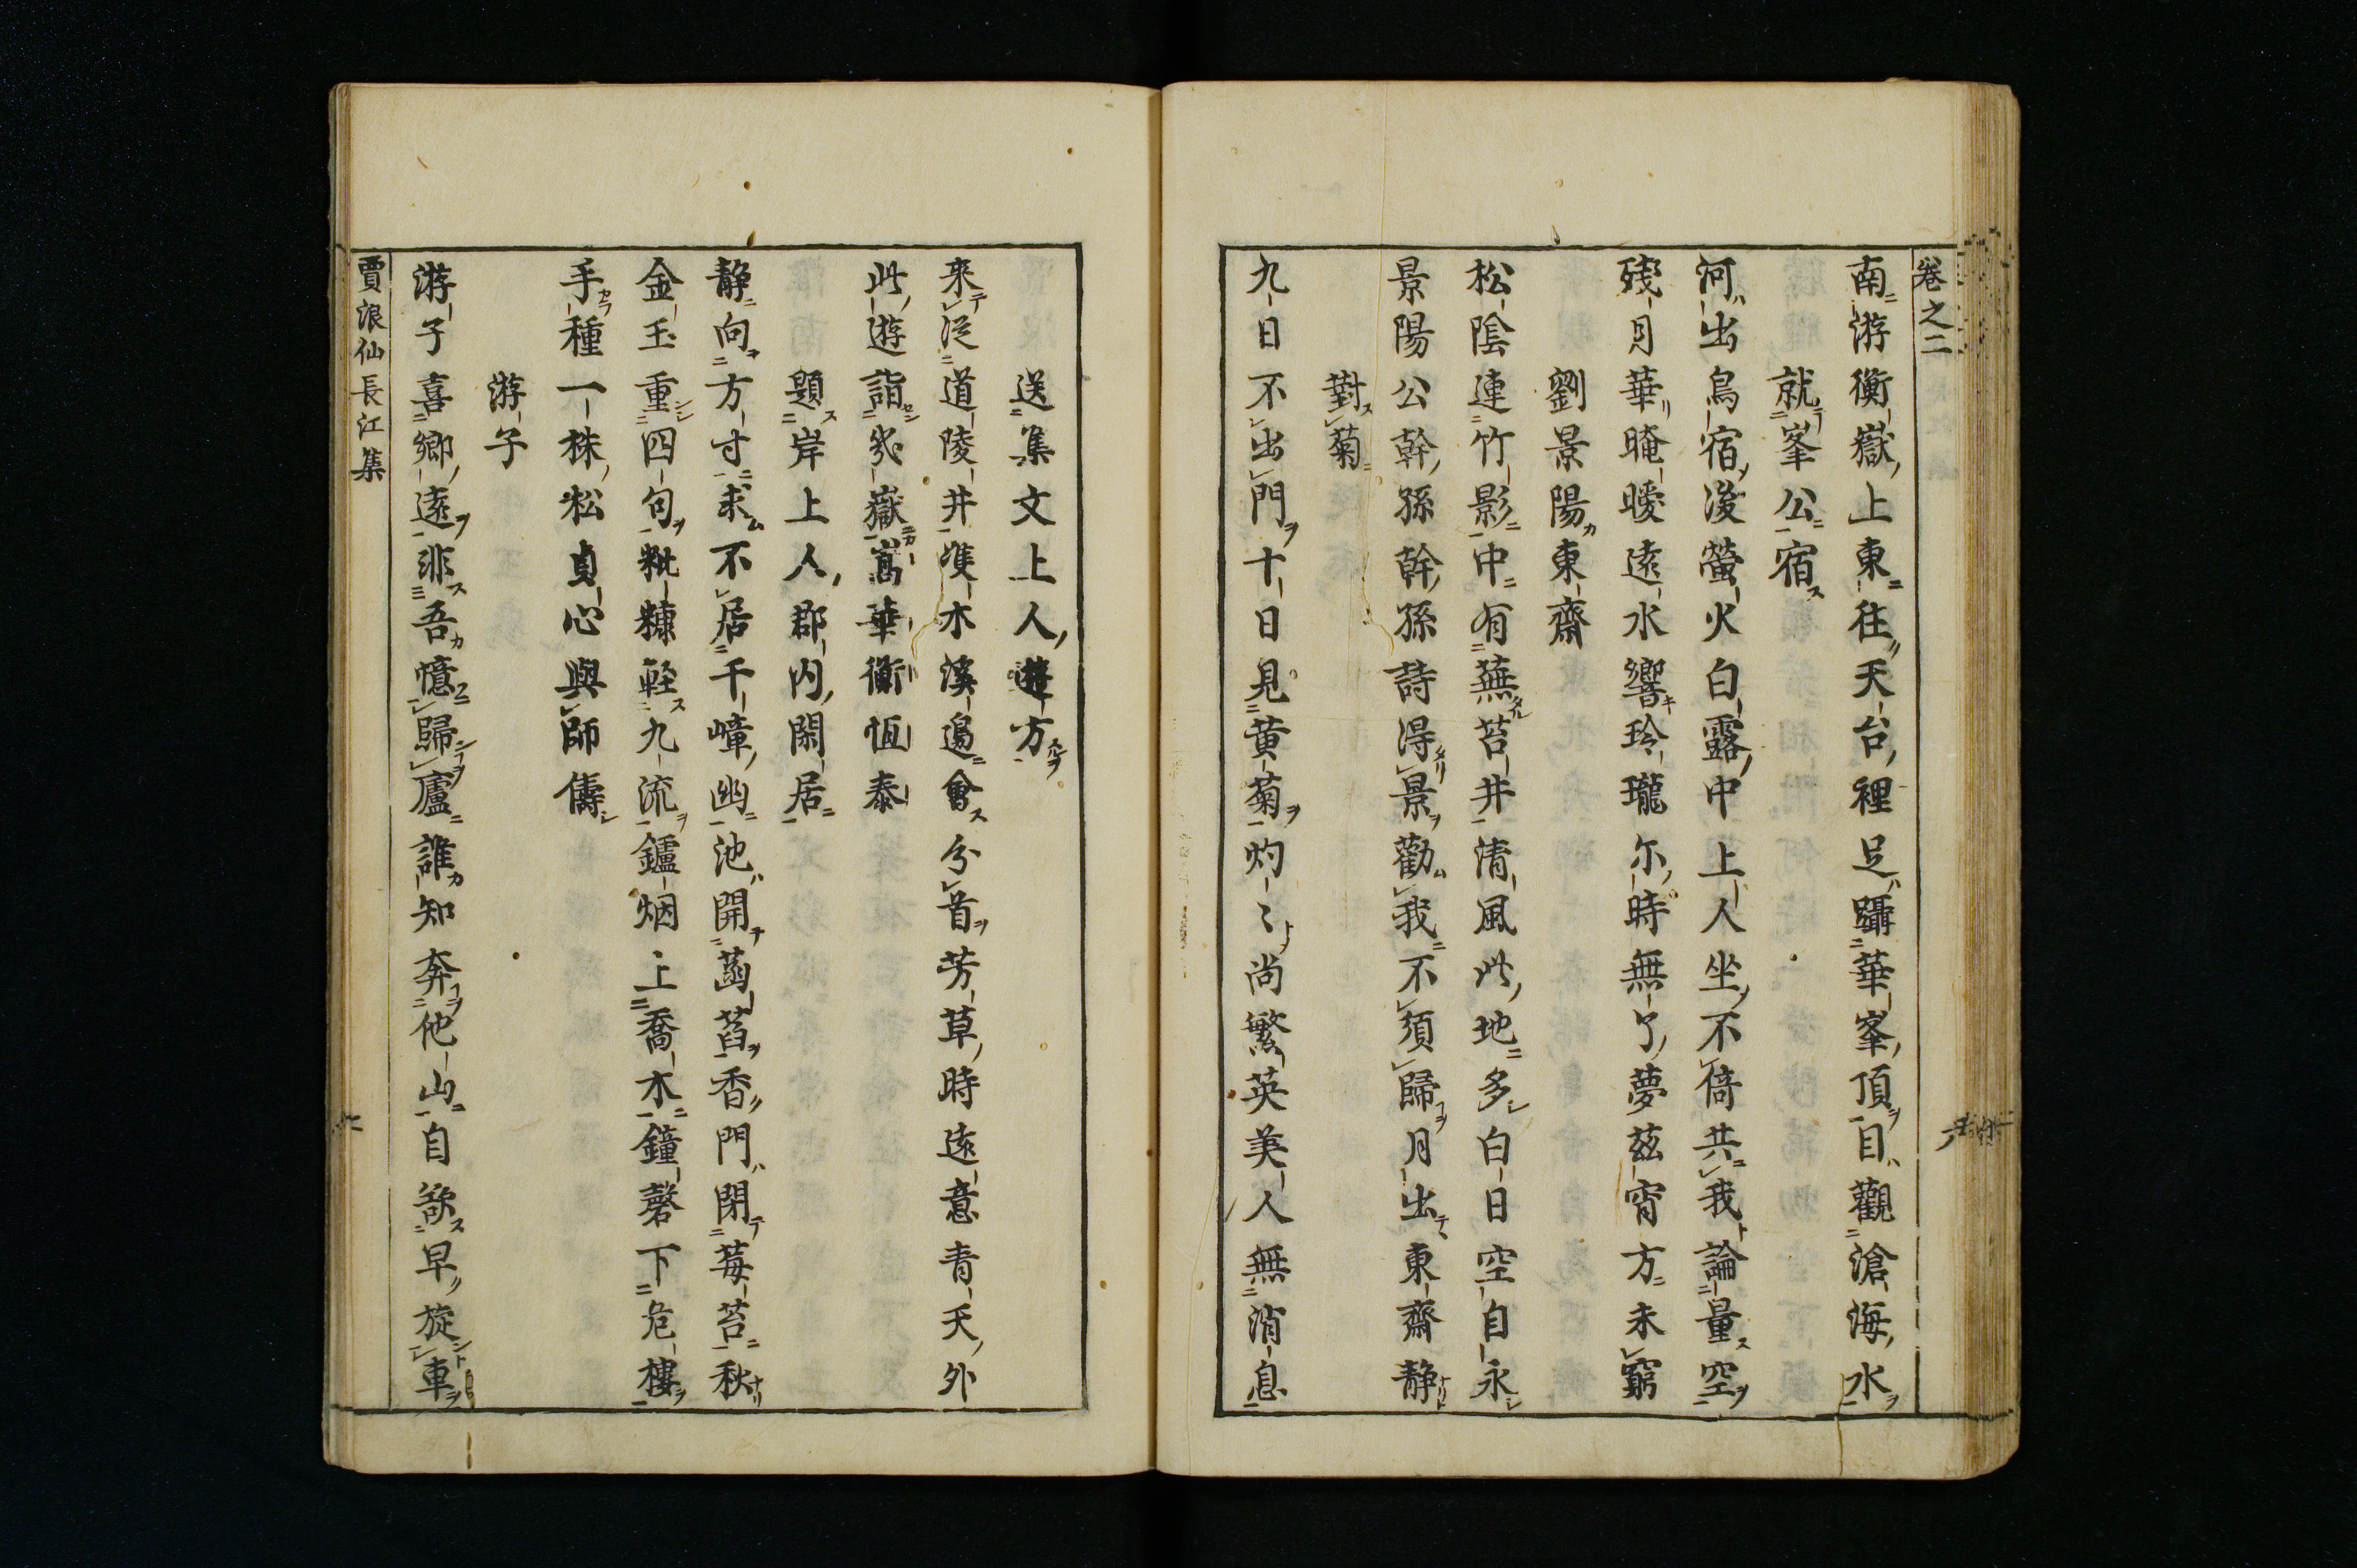 卷之二
南游衡嶽上東往天台裡足躡華峯頂目觀滄海水
就峯公宿
河出鳥宿後螢火白露中上人坐不倚共我論量空
殘月華晻曖遠水響玲瓏尓時無了夢茲宵方未窮
劉景陽東齋
松陰連竹影中有蕪苔井清風此地多白日空自永
景陽公幹孫幹孫詩得景勸我不須歸月出東齋静
對菊
九日不出門十日見黄菊灼〻尚繁英美人無消息
送集文上人遊方
來従道陵井雙木溪邉會分首芳草時遠意青天外
此遊詣幾嶽嵩華衡恒泰
題岸上人郡内閑居
静向方寸求不居千嶂幽池開菡萏香門閉莓苔秋
金玉重四句粃糠軽九流鑪烟上喬木鐘磬下危樓
手種一株松貞心與師儔
游子
游子喜鄉遠非吾憶歸廬誰知奔他山自欲早旋車
賈浪仙長江集